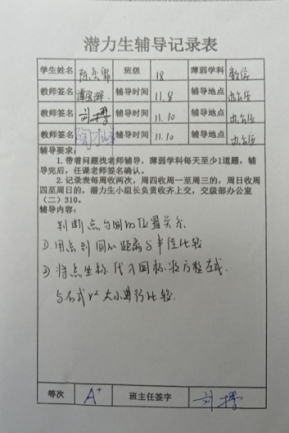 潜力生辅导记录表
学生姓名 班级 18 薄弱学科 数学
教师签名 辅导时间 11.8 辅导地点 办公室
教师签名 辅导时间 11.10 辅导地点 办公室
教师签名 辅导时间 11.10 辅导地点 办公室
辅导要求：
1.带着问题找老师辅导，薄弱学科每天至少1道题，辅
导完后，任课老师签名确认。
2.记录表每周收两次，周四收周一至周三的，周日收周
四至周日的，潜力生小组长负责收齐上交，交级部办公室
（二）310。
辅导内容：
判断点与圆的位置关系
①用点到圆心距离与半径比较
②将点坐标代入圆标准方程左式
与右式r²大小进行比较
等次 A⁺ 班主任签字